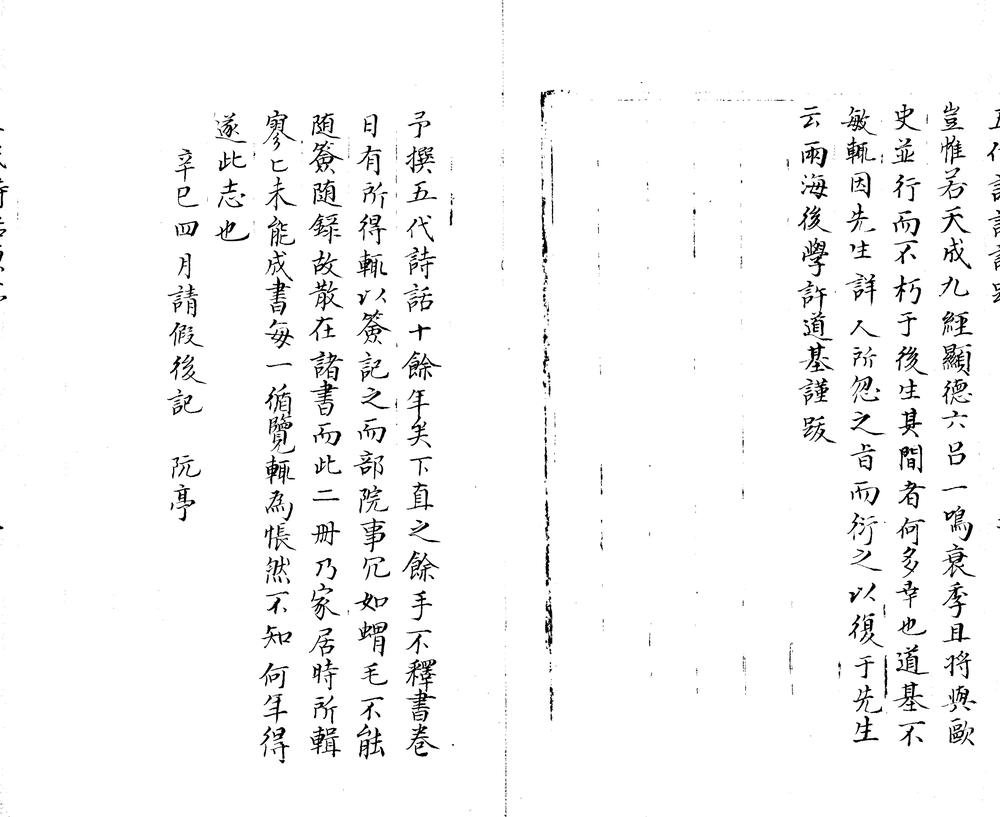 豈惟若天成九經顯德六呂一鳴衰季且將與歐
史並行而不朽于後生其間者何多幸也道基不
敏輒因先生詳人所忽之旨而衍之以復于先生
云雨海後學許道基謹跋
予撰五代詩話十餘年矣下直之餘手不釋書卷
日有所得輒以簽記之而部院事冗如蝟毛不能
随簽随錄故散在諸書而此二冊乃家居時所輯
寥匕未能成書每一循覽輒為悵然不知何年得
遂此志也
辛巳四月請假後記　阮亭